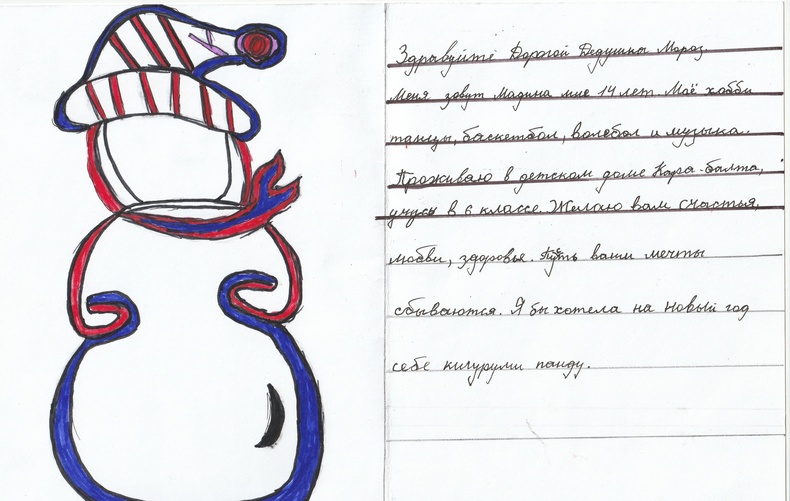 Здравуйте Дорогой Дедушка Мороз
Меня зовут Мадина мне 14 лет. Моё хобби
танцы, баскетбол, волебол и музыка.
Проживаю в детском доме Кара-балта,
учусь в 6 классе. Желаю вам счастья,
любви, здоровья. Пусть ваши мечты
сбываются. Я бы хотела на новый год
себе кигуруми панду.